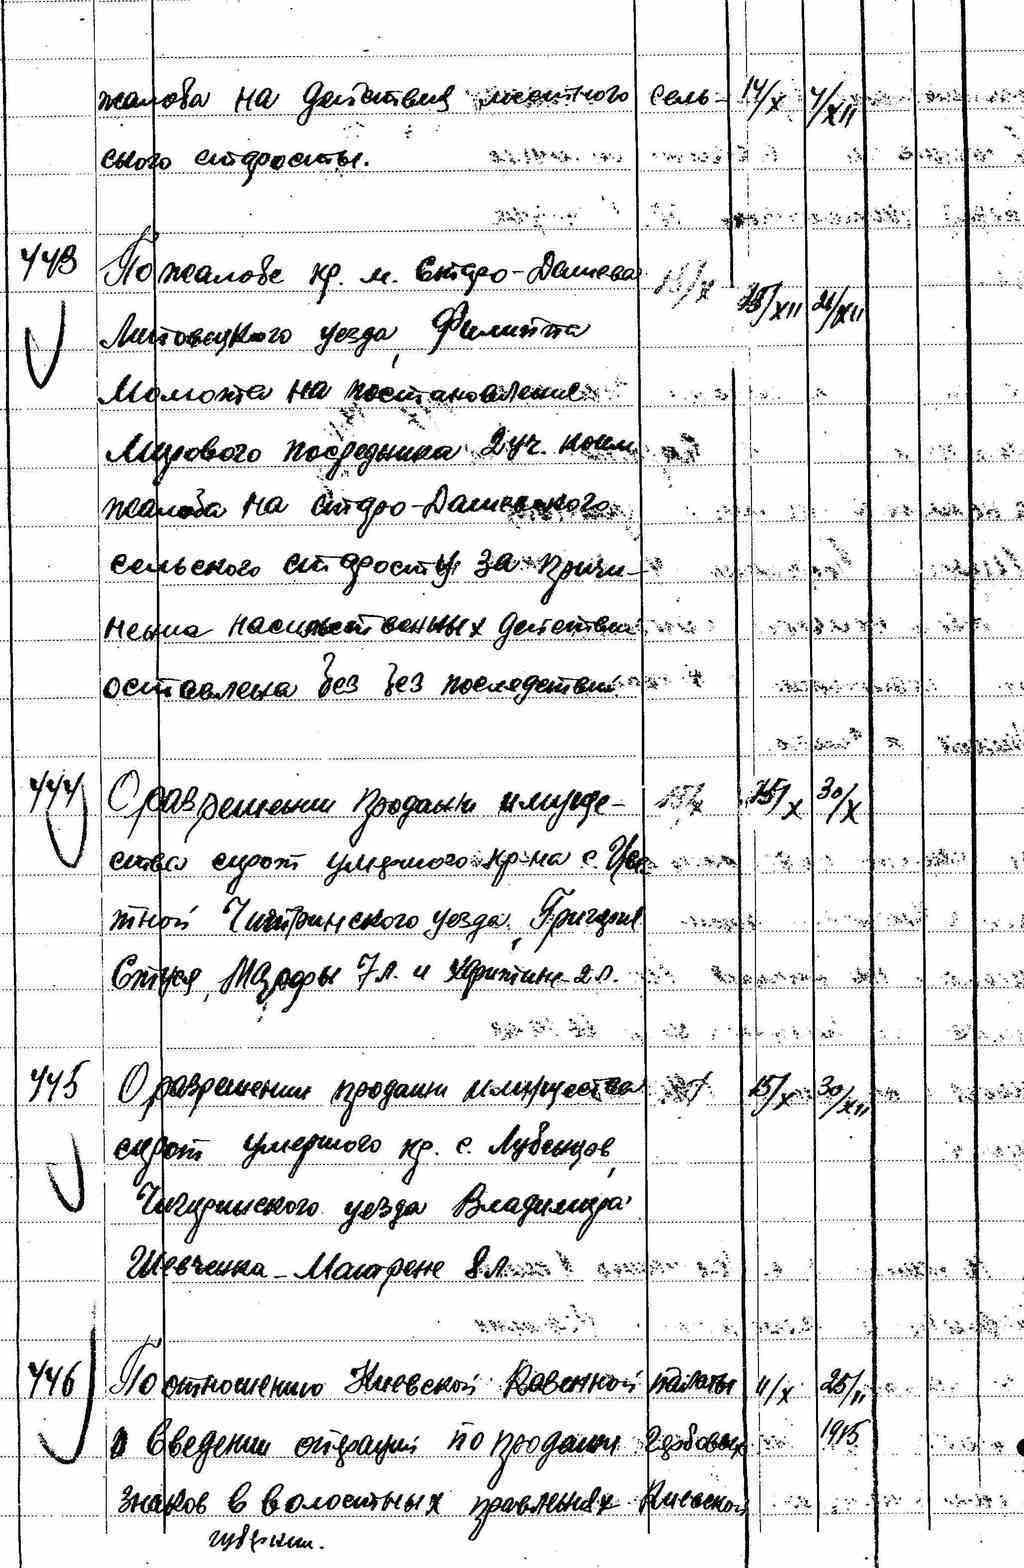 жалоба на действия местного сель- 14/X 7/XII
ского старосты.
443 По жалобе кр. м. Старо-Дашева 15/X 23/XII 21/XII
Липовецкого уезда, Филиппа
Момота на постановление
Мирового посредника 2 уч. коим
жалоба на старо-Дашевского
сельского старосту за причи-
нения насильственных действия
оставлена без без последствий
444 О разрешении продажи имуще- 15/X 25/X 30/X
ства сирот умершого кр-на с.
тной Чигиринского уезда, Григория
Стуся, Марфы 7 л. и Христины 2 л.
445 О разрешении продажи имущества 15/X 30/XII
сирот умершого кр. с. Лубенцов,
Чигиринского уезда Владимира
Шевченка - Матрене 8 л.
446 По отношению Киевской Казенной палаты 11/X 25/II
о введении операций по продажи гербовых 1915
знаков в волостных правлениях Киевской
губернии.